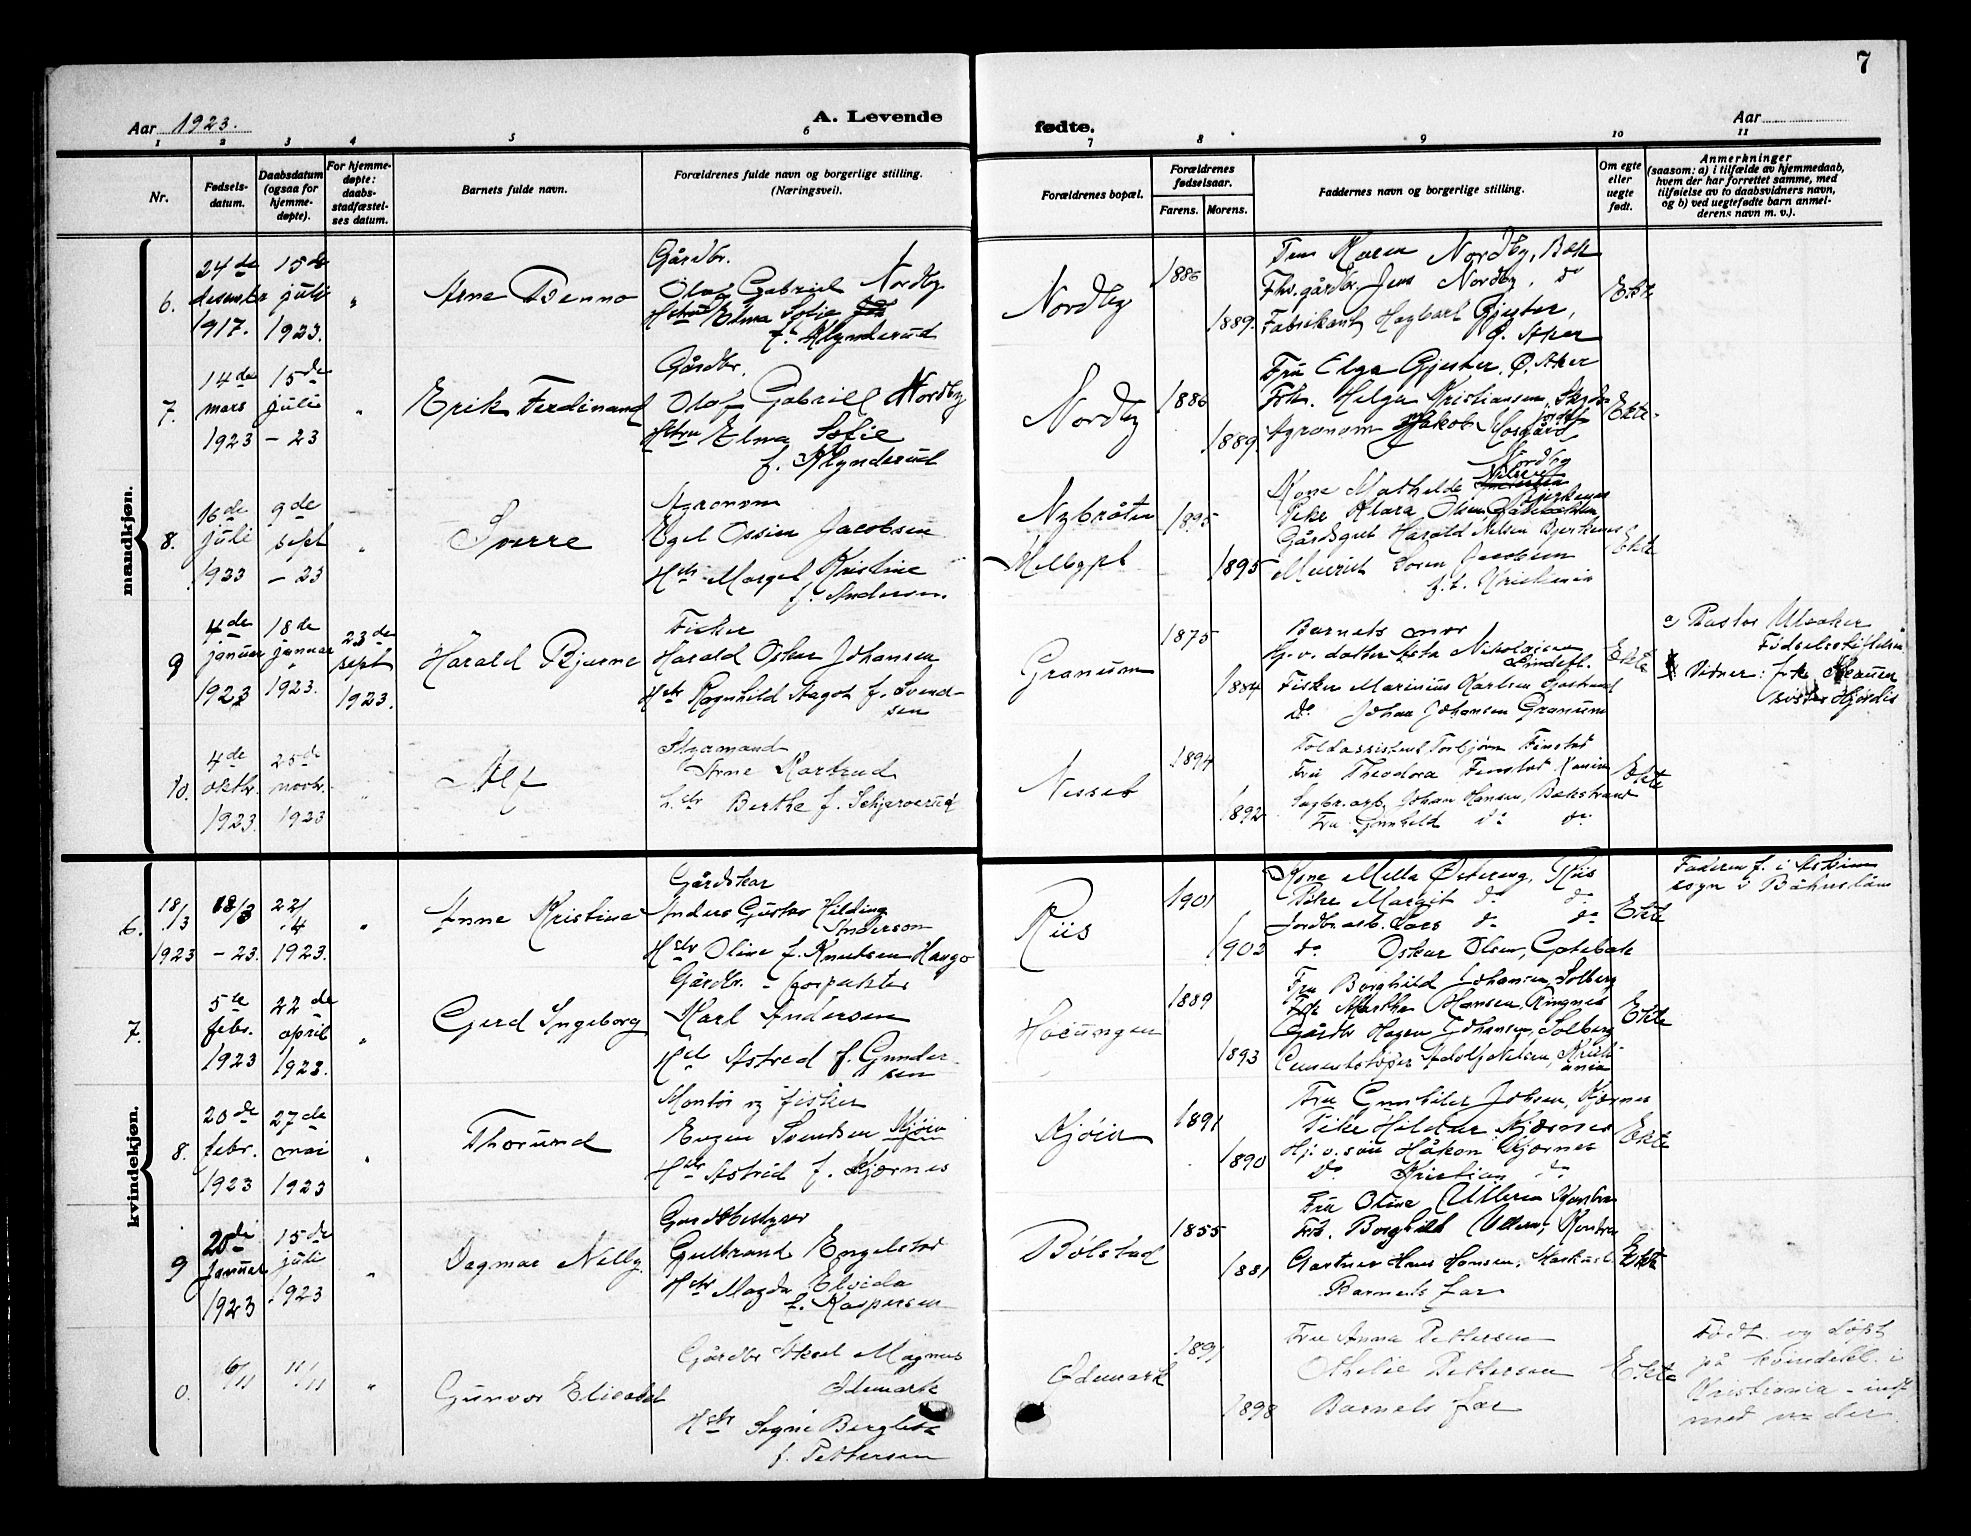 7
Aar 1923.
A. Levende
fødte.
Aar
1 2 3 4 5 6 7 8 9 10 11
Nr.
Fødsels-
datum.
Daabsdatum
(ogsaa for
hjemme-
døpte).
For hjemme-
døpte:
daabs-
stadfæstel-
ses datum.
Barnets fulde navn.
Forældrenes fulde navn og borgerlige stilling.
(Næringsvei).
Forældrenes bopæl.
Forældrenes
fødselsaar.
Farens. Morens.
Faddernes navn og borgerlige stilling.
Om egte
eller
uegte
født.
Anmerkninger
(saasom: a) i tilfælde av hjemmedaab,
hvem der har forrettet samme, med
tilføielse av to daabsvidners navn,
og b) ved uegtefødte barn anmel-
derens navn m. v.).
mandkjøn.
6.
24de desember 1917.
15de juli 1923.
"
Arne Benno
Gårdbr.
Olaf Gabriel Nordby
Hstru Elma Sofie
f. Klynderud
Nordby
1886
1889.
Fru Karen Nordby, Bæk
Fhv. gårdbr. Jens Nordby, do
Fabrikant Hagbart Gjester,
Ø. Aker
Ekte
7.
14de mars 1923
15de juli – 23
"
Erik Ferdinand
Gårdbr.
Olaf Gabriel Nordby
Hstru Elma Sofie
f. Klynderud
Nordby
1886
1889.
Fru Elga Gjester, Ø. Aker
Frk. Helga Kristiansen,
Agronom Jakob
Nordby
Ekte.
8.
16de juli 1923
9de sept – 23
"
Sverre
Agronom
Egel Ossian Jacobsen
Hstr. Margel Kristine
f. Andersen.
Nybråten
1895
1895
Kone Mathilde Nilsen
Bjerkenes
Pike Klara Olsen
Gårdsgut Harald Nilsen Bjerkenes
Meierist Soren Jacobsen
p.t. Kristiania
Ekte
9
4de januar 1923
18de januar 1923.
23de sept 1923.
Harald Bjarne
Fisker
Harald Oskar Johansen
Hstr Ragnhild Dagot f. Svend-
sen
Granum
1875
1884
Barnets mor
Hj. v. datter Asta Nikolaisen
Fisker Marinius Karlsen
do Johan Johansen Granum
Ekte
a) Pastor Ulsaker
Fødselsstiftelsen
Vidner: frk.
søster Hjørdis
10.
4de oktbr. 1923.
25de novbr. 1923
"
Alf
Styrmand
Arne Kortrud
h.str Berthe f. Schjerverud
Nesset
1894
1892
Toldassistent Torbjørn Finstad
Fru Theodora Finstad
Sagbr.arb. Johan Hansen, Bækstrand
Fru Gunhild do do
Ekte
kvindekjøn.
6.
18/3 1923
18/3 – 23.
22/4 1923.
"
Anne Kristine
Gårdskar
Anders Gustav Hilding
Anderson
Hstr Oline f. Knutsen Haugo
Riis
1901
1903
Kone Mella Østereng, Riis
Pike Margit do do
Jordbr.arb. Lars do do
do Oskar Olsen, Gotebak
Ekte
Faderen f. i Askim
sogn i Båhuslän
7.
5te febr. 1923
22de april 1923.
"
Gerd Ingeborg
Gårdbr. - forpakter
Karl Andersen
Hstr Astrid f. Gunder-
sen
Haugen
1889
1893
Fru Borghild Johansen, Solberg
Frk Martha Hansen, Ringnes
Gårdbr Hagen Johansen, Solberg
Cementstøper Adolf Nilsen, Kristi-
ania
Ekte
8.
20de febr. 1923
27de mai 1923
"
Thorund
Montør og fisker
Eugen Svendsen Kjøia
Hstr Astrid f. Kjærnes
Kjøia
1891
1890
Fru Gunhilda Jobsen, Kjærnes
Pike Hildur Kjærnes
Hj. v. søn Håkon Kjærnes
do Kristian do
Ekte
9
20de januar 1923
15de juli 1923
"
Dagmar Nelly.
Gardsbestyrer
Gulbrand Engelstad
Hstr Magda Elvida
f. Kaspersen
Bølstad
1855
1881
Fru Oline Ullern
Frk. Borghild Ullern,
Gartner Hans Hansen,
Barnets far
Ekte
0.
6/11
11/11
"
Gunvor Elisabet
Gårdbr Aksel Magnus
Ødemark
Hstr Signe Bergliot
f. Pettersen
Ødemark
1891
1898
Fru Anna Pettersen
Othelie Pettersen
Barnets far
Ekte
Født og døpt
på kvindekl. i
Kristiania - inf.
med under.